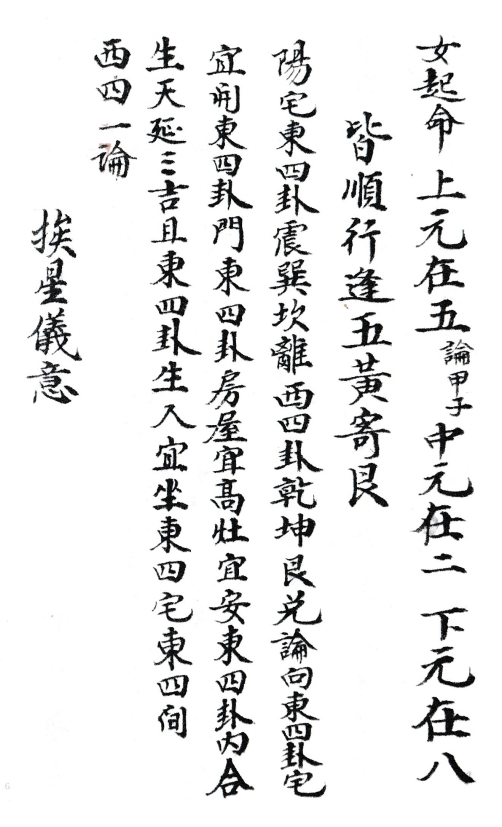 女起命 上元在五 論甲子 中元在二 下元在八
皆順行逢五黃寄艮
陽宅東四卦震巽坎離西四卦乾坤艮兑論向東四卦宅
宜開東四卦門東四卦房屋宜高灶宜安東四卦內合
生天延三吉且東四卦生人宜坐東四宅東四间
西四一論
挨星儀意